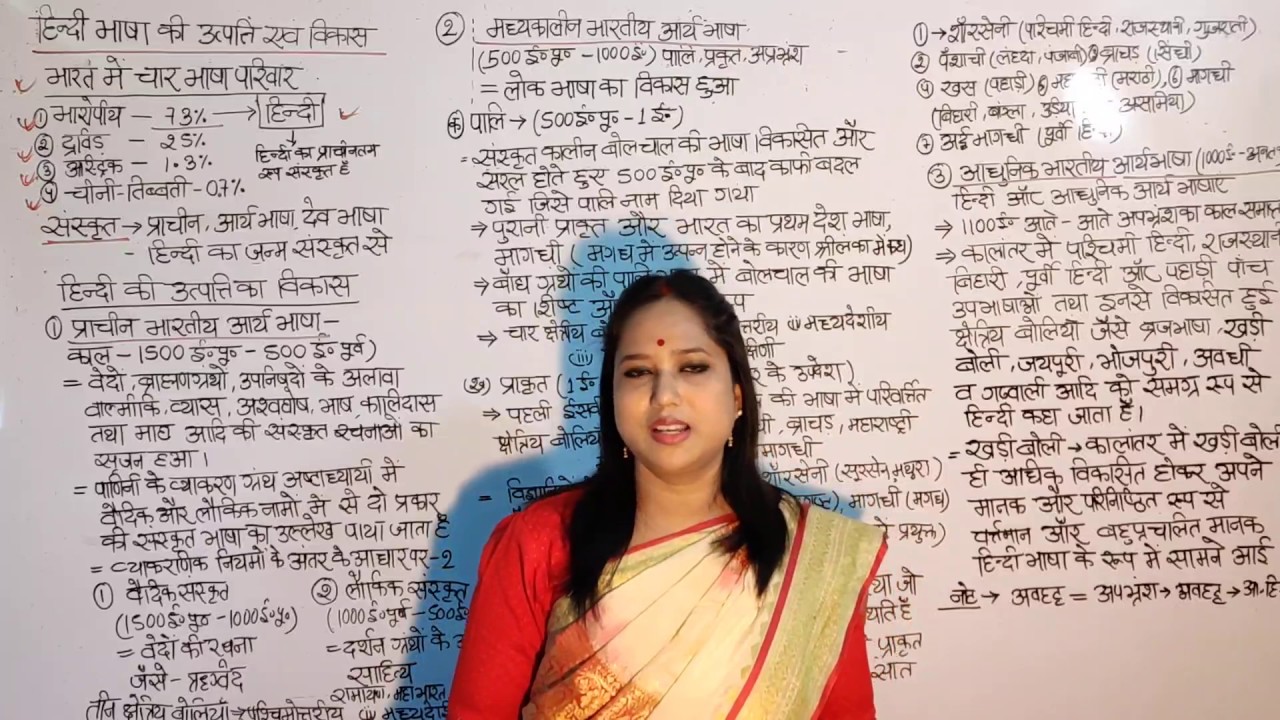 हिन्दी भाषा की उत्पत्ति एवं विकास
भारत में चार भाषा परिवार
① भारोपीय - 73% → हिन्दी
② द्रविड़ - 25%
③ आस्ट्रिक - 1.3%
④ चीनी-तिब्बती - 0.7%
हिन्दी का प्राचीनतम
रूप संस्कृत है
संस्कृत → प्राचीन, आर्य भाषा, देव भाषा
- हिन्दी का जन्म संस्कृत से
हिन्दी की उत्पत्ति का विकास
① प्राचीन भारतीय आर्य भाषा -
काल - 1500 ई०पू० - 500 ई० पूर्व)
= वेदों, ब्राह्मणग्रंथों, उपनिषदों के अलावा
वाल्मीकि, व्यास, अश्वघोष, भाष, कालिदास
तथा माघ आदि की संस्कृत रचनाओं का
सृजन हुआ।
= पाणिनी के व्याकरण ग्रंथ अष्टाध्यायी में
वैदिक और लौकिक नामों में से दो प्रकार
की संस्कृत भाषा का उल्लेख पाया जाता है
= व्याकरणिक नियमों के अंतर के आधार पर - 2
① वैदिक संस्कृत
(1500 ई०पू० - 1000 ई०पू०)
= वेदों की रचना
जैसे - ऋग्वेद
② लौकिक संस्कृत
(1000 ई०पूर्व - 500 ई०
= दर्शन ग्रंथों के
साहित्य
रामायण, महाभारत
तीन क्षेत्रिय बोलियाँ → पश्चिमोत्तरीय (ii) मध्यदेशी
② मध्यकालीन भारतीय आर्य भाषा
(500 ई०पू० - 1000 ई०) पालि, प्रकृत, अपभ्रंश
= लोक भाषा का विकास हुआ
(क) पालि → (500 ई०पू० - 1 ई०)
= संस्कृत कालीन बोलचाल की भाषा विकसित और
सरल होते हुए 500 ई०पू० के बाद काफी बदल
गई जिसे पालि नाम दिया गया
→ पुरानी प्राकृत और भारत का प्रथम देश भाषा,
मागधी (मगध में उत्पन्न होने के कारण श्रीलंका में कहा)
→ बौद्ध ग्रंथों की पालि में बोलचाल की भाषा
का शिष्ट
→ चार क्षेत्रीय (ii) मध्यदेशीय
(iii)
(ख) प्राकृत (1 ई०
→ पहली ईसवी की भाषा में परिवर्तित
क्षेत्रिय बोलियों ब्राचड़, महाराष्ट्री
मागधी
शौरसेनी (सूरसेन, मथुरा)
मागधी (मगध)
प्रयुक्त)
था जो
प्राकृत
सात
① → शौरसेनी (पश्चिमी हिन्दी, राजस्थानी, गुजराती)
② पैशाची (लंहदा, पंजाबी) ③ ब्राचड़ (सिंधी)
④ खस (पहाड़ी) (मराठी), ⑥ मागधी
(बिहारी, बंग्ला, उड़िया असमिया)
⑦ अर्द्धमागधी (पूर्वी
③ आधुनिक भारतीय आर्य भाषा (1000 ई० -
हिन्दी और आधुनिक आर्य भाषाएं
→ 1100 ई० आते - आते अपभ्रंश का काल समाप्त
→ कालांतर में पश्चिमी हिन्दी, राजस्थान
बिहारी, पूर्वी हिन्दी और पहाड़ी पांच
उपभाषाओं तथा इनसे विकसित हुई
क्षेत्रिय बोलियों जैसे ब्रजभाषा, खड़ी
बोली, जयपूरी, भोजपुरी, अवधी
व गढ़वाली आदि को समग्र रूप से
हिन्दी कहा जाता है।
= खड़ी बोली → कालांतर में खड़ी बोली
ही अधिक विकसित होकर अपने
मानक और परिनिष्ठित रूप से
वर्तमान और बहुप्रचलित मानक
हिन्दी भाषा के रूप में सामने आई
नोट → अवहट्ट = अपभ्रंश → अवहट्ट → आ.हि